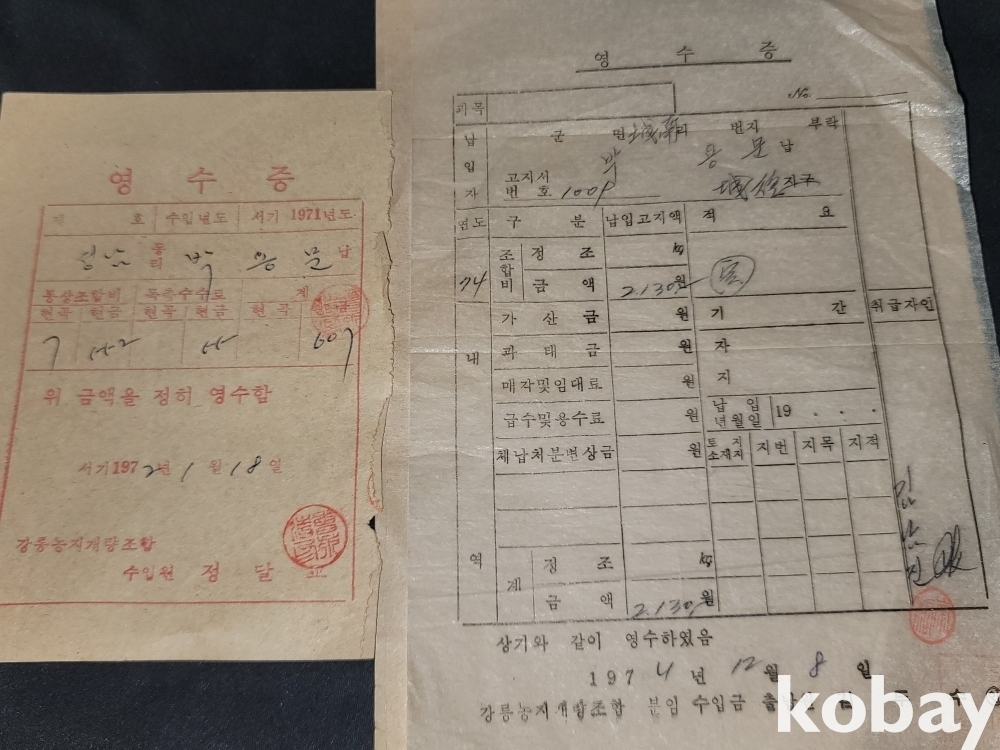 영 수 증
제 호 수입년도 서기 1971년도
성남 동리 박 용 문 납
통상조합비 독촉수수료 계
현곡 현금 현곡 현금 현곡 현금
7 607
위 금액을 정히 영수합
서기 1972년 1월 18일
강릉농지개량조합
수입원 정 달
영 수 증
No.
과목
납입자 군 면 城南리 번지 부락
박 용 문 납
고지서번호 1009
년도 구 분 납입고지액 적 요
74 조합비 정 조 kg
금 액 2.130 원
가 산 금 원 기 간 취급자인
내 과 태 금 원 자
매각및임대료 원 지
급수및용수료 원 납입년월일 19 . . .
체납처분변상금 원 토지소재지 지번 지목 지적
역 계 정 조 kg
금 액 2.130 원
상기와 같이 영수하였음
1974년 12월 8일
강릉농지개량조합 분임 수입금 출납
kobay